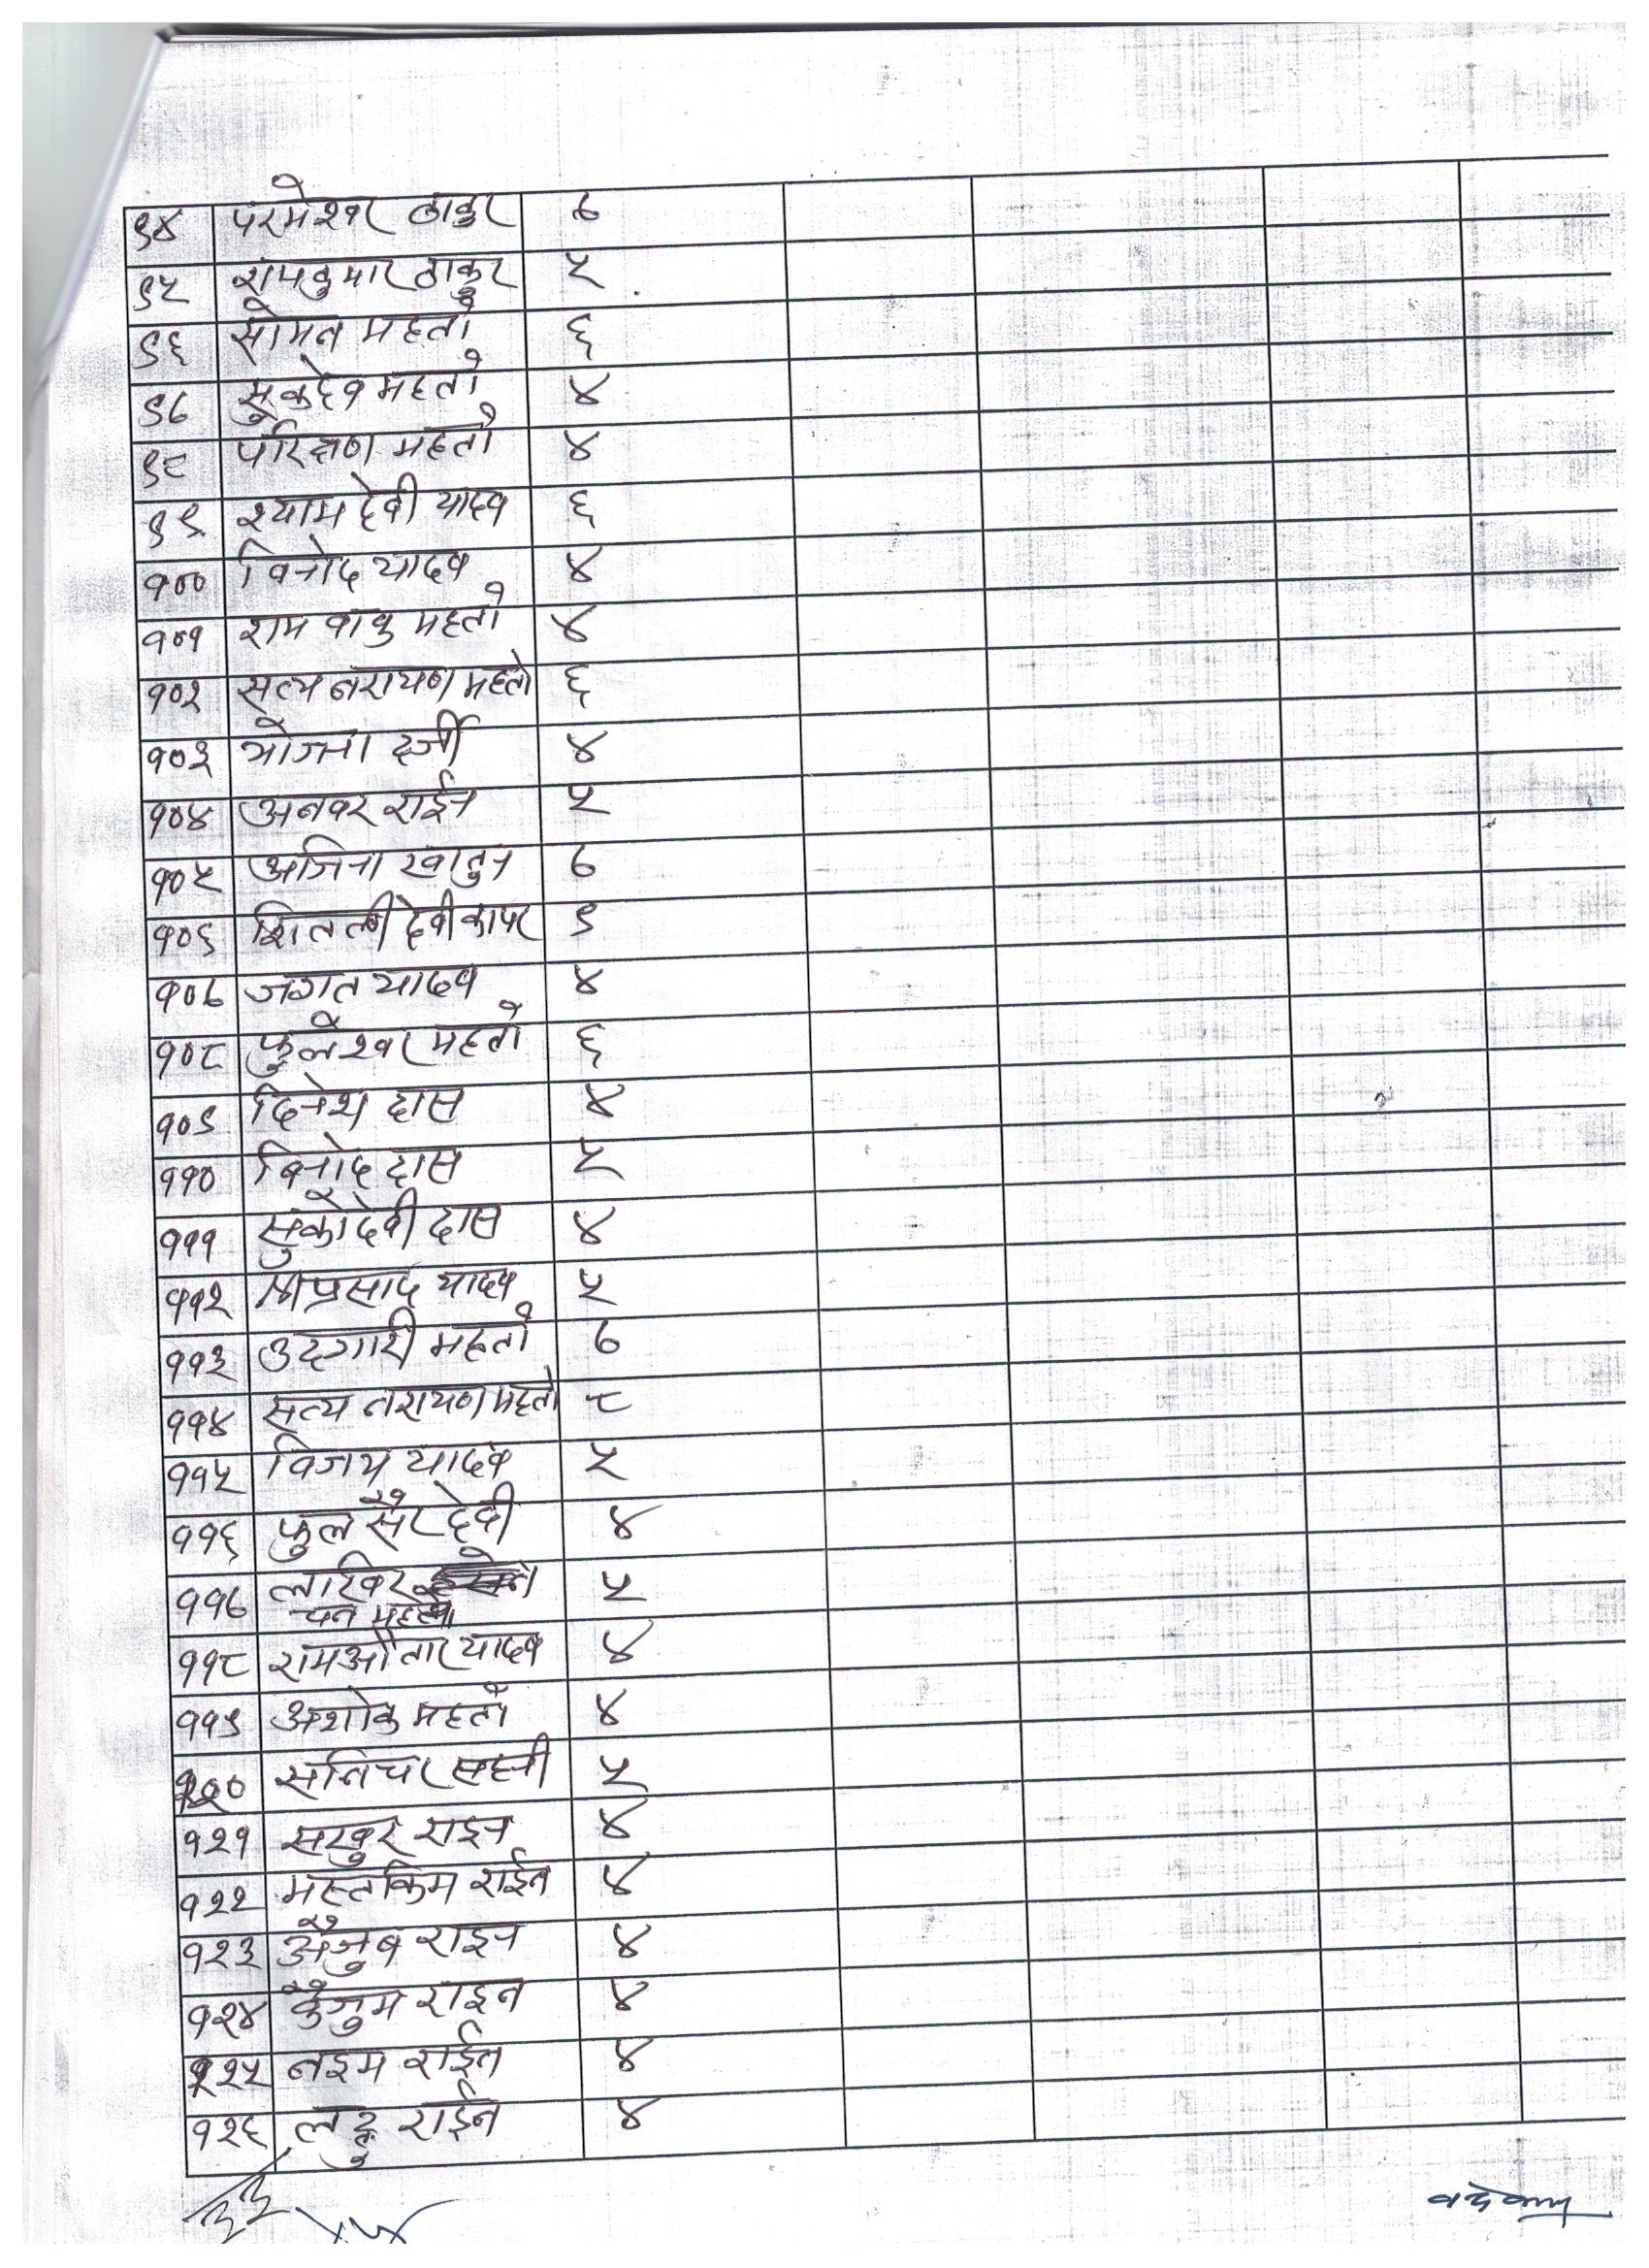 ९४ परमेश्वर ठाकुर ७
९५ रामकुमार ठाकुर ५
९६ सोमन महतो ६
९७ सुकदेव महतो ४
९८ परिक्षण महतो ४
९९ श्याम देवी यादव ६
१०० विनोद यादव ४
१०१ राम वावु महतो ४
१०२ सत्य नरायण महतो ६
१०३ दर्जी ४
१०४ अनवर राईन ५
१०५ अजिना खातुन ७
१०६ शितली देवी कापर ९
१०७ जगत यादव ४
१०८ फुलेश्वर महतो ६
१०९ दिनेश दास ४
११० विनोद दास ५
१११ सुको देवी दास ४
११२ श्रीप्रसाद यादव ५
११३ उदगारी महतो ७
११४ सत्य नरायण महतो ८
११५ विजय यादव ५
११६ फुल सैर देवी ४
११७ ५
महतो
११८ रामऔतार यादव ४
११९ अशोक महतो ४
१२० सनिचर सहनी ५
१२१ सखुर राइन ४
१२२ मस्तकिम राईन ४
१२३ राइन ४
१२४ राइन ४
१२५ नइम राईन ४
१२६ राईन ४